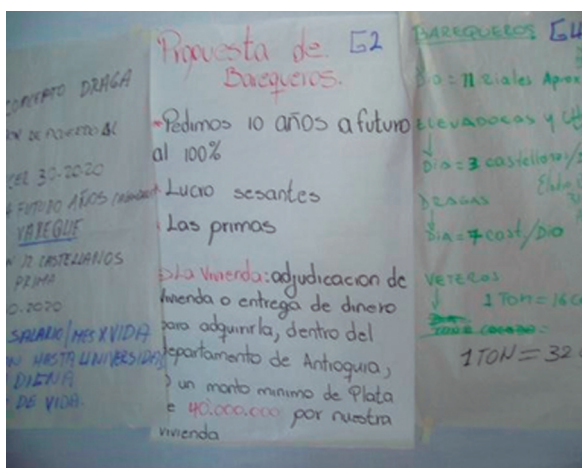 CONCEPTO DRAGA
30-2020
FUTURO AÑOS
YAREQUE
12 CASTELLANOS
PRIMA
2020
SALARIO/MES X VIDA
HASTA UNIVERSIDAD
DIGNA
DE VIDA.
Propuesta de G2
Barequeros.
-Pedimos 10 años a futuro
al 100%
Lucro sesantes
Las primas
La Vivienda: adjudicacion de
vivienda o entrega de dinero
para adquirirla, dentro del
departamento de Antioquia,
o un monto minimo de Plata
de 40.000.000 por nuestra
vivienda
BAREQUEROS G4
Dia = 11 Riales Aprox
ELEVADORAS Y
Dia = 3 castellanos/
DRAGAS
Dia = 7 cast/Dia
VETEROS
1 Ton = 16
1 TON = 32